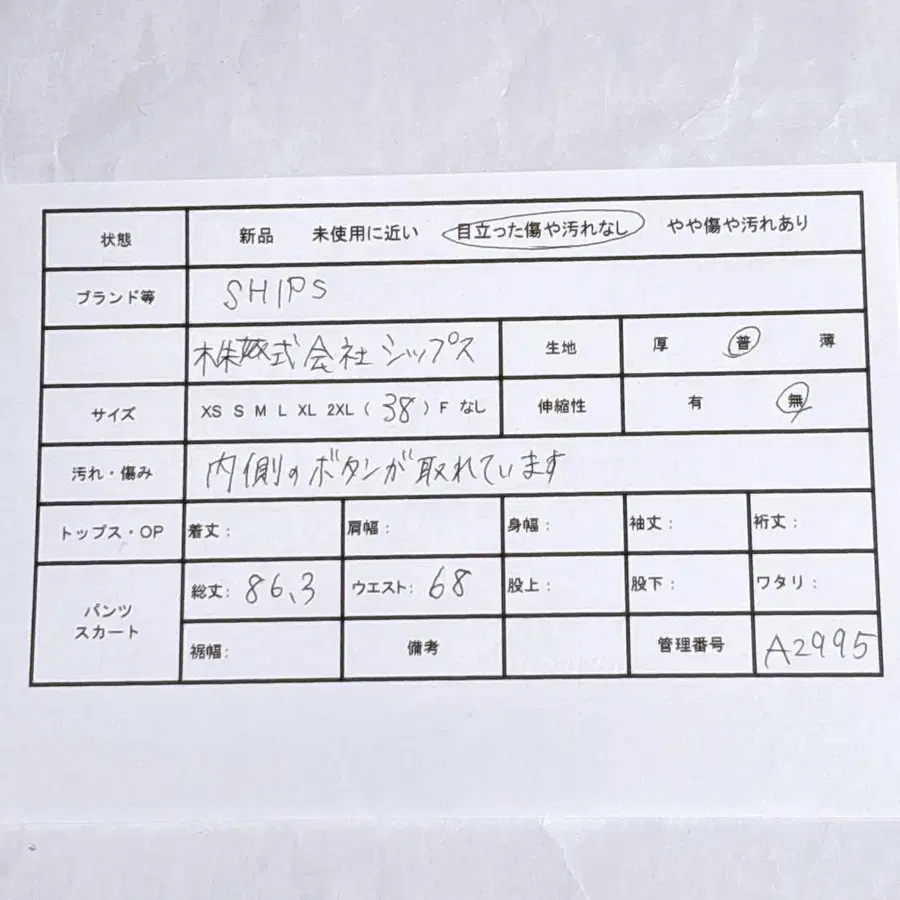 状態 新品 未使用に近い 目立った傷や汚れなし やや傷や汚れあり
ブランド等 SHIPS
株式会社シップス 生地 厚 普 薄
サイズ XS S M L XL 2XL ( 38 ) F なし 伸縮性 有 無
汚れ・傷み 内側のボタンが取れています
トップス・OP 着丈: 肩幅: 身幅: 袖丈: 裄丈:
パンツ
スカート
総丈: 86.3 ウエスト: 68 股上: 股下: ワタリ:
裾幅: 備考 管理番号 A2995